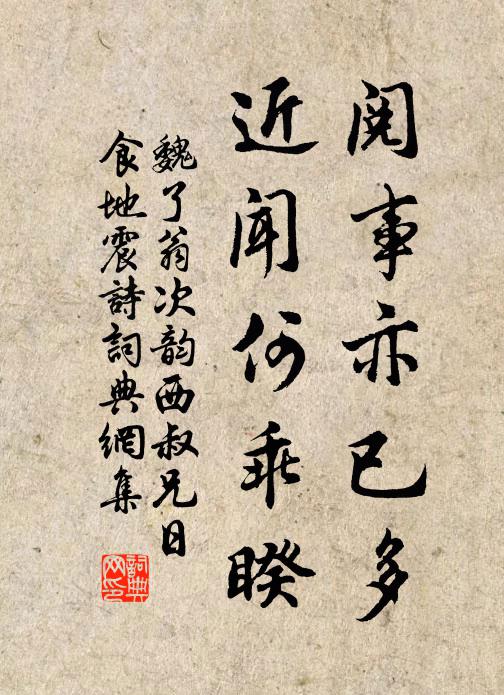 閱事亦已多
近聞何乖睽
魏了翁次韵西叔兄日
食地震詩詞典網集
詞典
网印